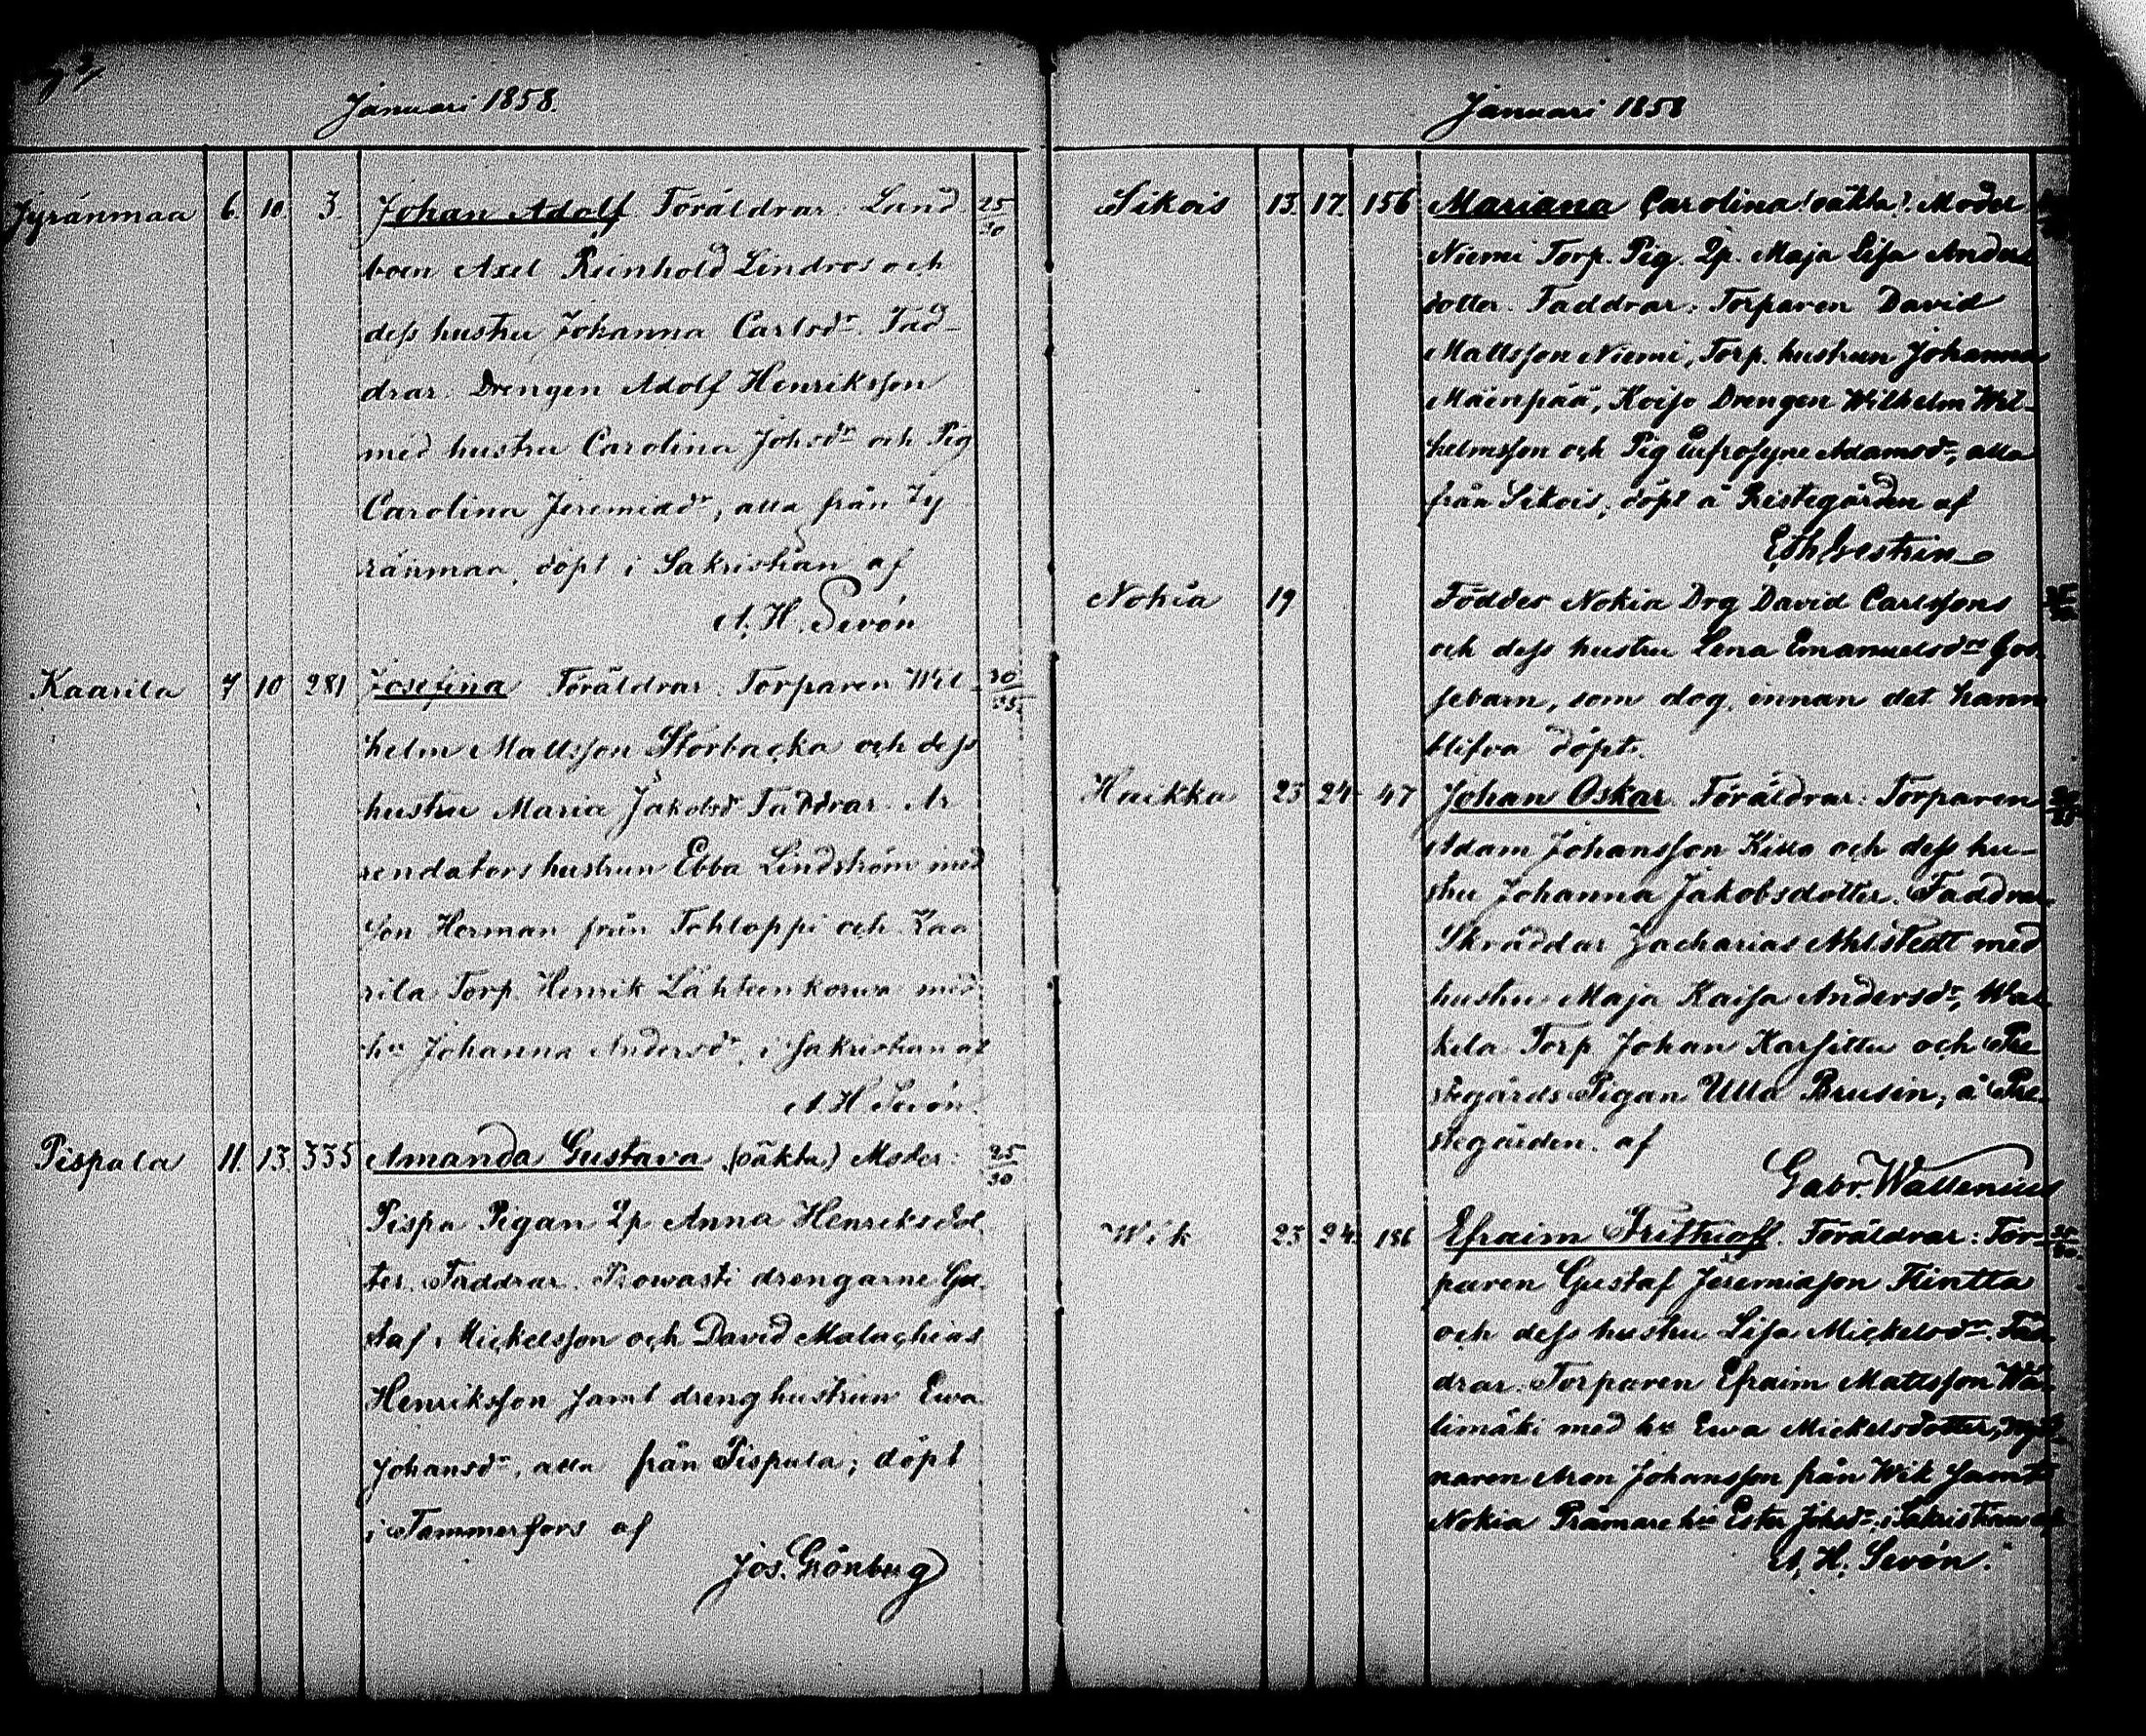 Januari 1858.
Jyränmaa 6. 10. 3. Johan Adolf. Föräldrar: Land 25/30
boen Axel Reinhold Lindros och
dess hustru Johanna Carlsdr. Fad-
drar: Drengen Adolf Henriksson
med hustru Carolina Johsdr och Pig
Carolina Jeremiædr, alla från Jy
ränmaa, döpt i Sakristian af
A. H. Sevón
Kaarila 7 10 281 Josefina Föräldrar: Torparen Wil- 30/35
helm Mattsson Storbacka och dess
hustru Maria Jakobsd. Faddrar: Ar
rendators hustrun Ebba Lindström med
son Herman från Tohloppi och Kaa
rila Torp. Henrik Lähteenkorwa med
hu Johanna Andersdr, i Sakristian af
A. H. Sevón.
Pispala 11. 13. 335 Amanda Gustava (oäkta) Moder: 25/30
Pispa Pigan Lp Anna Henriksdot
ter. Faddrar: Prowasti drengarne Gu
staf Mickelsson och David Malachias
Henriksson samt dreng hustrun Ewa
Johansdr, alla från Pispala; döpt
i Tammerfors af
Jos. Grönberg
Januari 1858
Sikois 13. 17. 156 Mariana Carolina (oäkta). Moder
Niemi Torp. Pig. Lp. Maja Lisa Anders
dotter. Faddrar: Torparen David
Mattsson Niemi, Torp. hustrun Johanna
Mäenpää, Koiso Drengen Wilhelm Wil-
helmsson och Pig Eufrosyne Adamsdr, alla
från Sikois; döpt å Prestegården af
Nokia 19 Föddes Nokia Drg David Carlssons
och dess hustru Lena Emanuelsdrs Gos
sebarn, som dog, innan det hann
blifva döpt.
Haikka 23 24 47 Johan Oskar. Föräldrar: Torparen
Adam Johansson Kisso och dess hu-
stru Johanna Jakobsdotter. Faddrar:
Skräddar Zacharias Ahlstedt med
hustru Maja Kaisa Andersdr, Wal
kila Torp Johan Karsittu och Pre
stegårds Pigan Ulla Brusin; å Pre
stegården af
Gabr. Wallenius
Wik 23 24. 186 Efraim Frithioff. Föräldrar: Tor-
paren Gustaf Jeremiasson Hintta
och dess hustru Lisa Mickelsdr. Fad
drar: Torparen Efraim Mattsson
limäki med hu Ewa Mickelsdotter,
naren Aron Johansson från Wik samt
Nokia Prämare hu Ester Johsdr, i Sakristian af
A. H. Sevón.